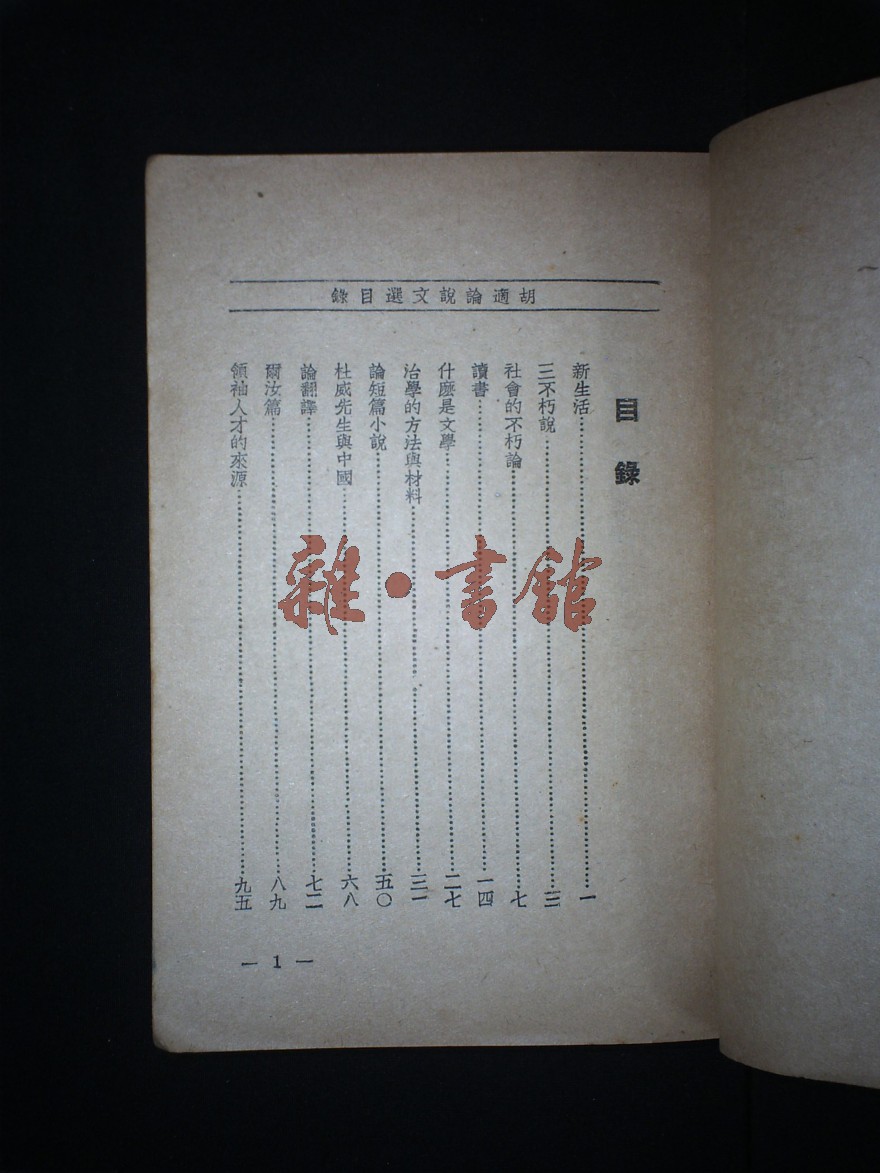 胡適論說文選目錄
目錄
新生活……一
三不朽說……三
社會的不朽論……七
讀書……一四
什麽是文學……二七
治學的方法與材料……三一
論短篇小說……五〇
杜威先生與中國……六八
論翻譯……七二
爾汝篇……八九
領袖人才的來源……九五
— 1 —
雜·書館